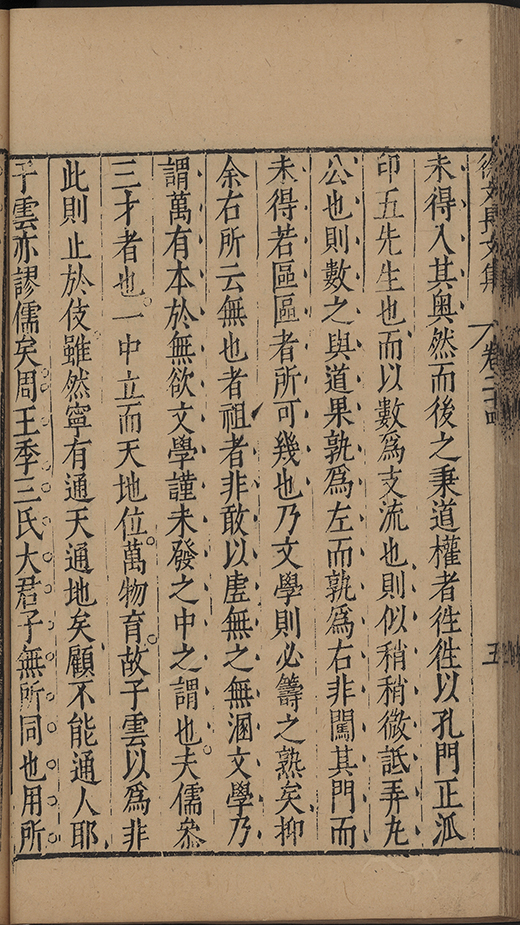 徐文長文集 卷二十四 五
未得入其奥然而後之秉道權者徃徃以孔門正泒
印五先生也而以數爲支流也則似稍稍微詆弄丸
公也則數之與道果孰爲左而孰爲右非闖其門而
未得若區區者所可幾也乃文學則必籌之熟矣抑
余右所云無也者祖者非敢以虛無之無溷文學乃
謂萬有本於無欲文學謹未發之中之謂也夫儒叅
三才者也一中立而天地位萬物育故子雲以爲非
此則止於伎雖然寧有通天通地矣顧不能通人耶
子雲亦謬儒矣周王季三氏大君子無所同也用所